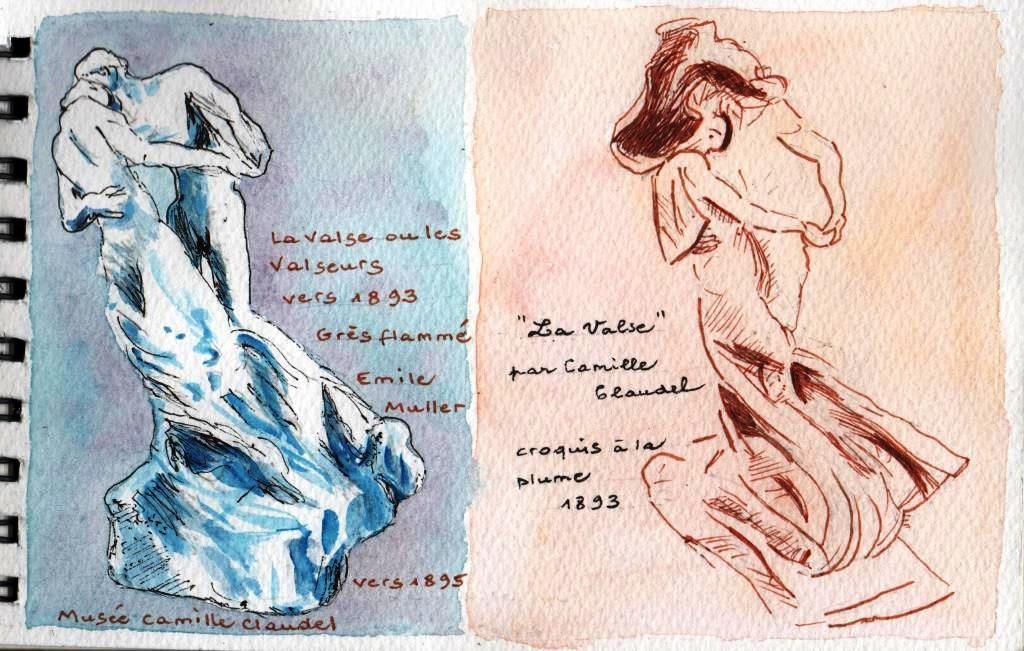 La Valse ou les
Valseurs
vers 1893
Grès flammé
Emile
Muller
vers 1895
Musée Camille Claudel
"La Valse"
par Camille
Claudel
croquis à la
plume
1893